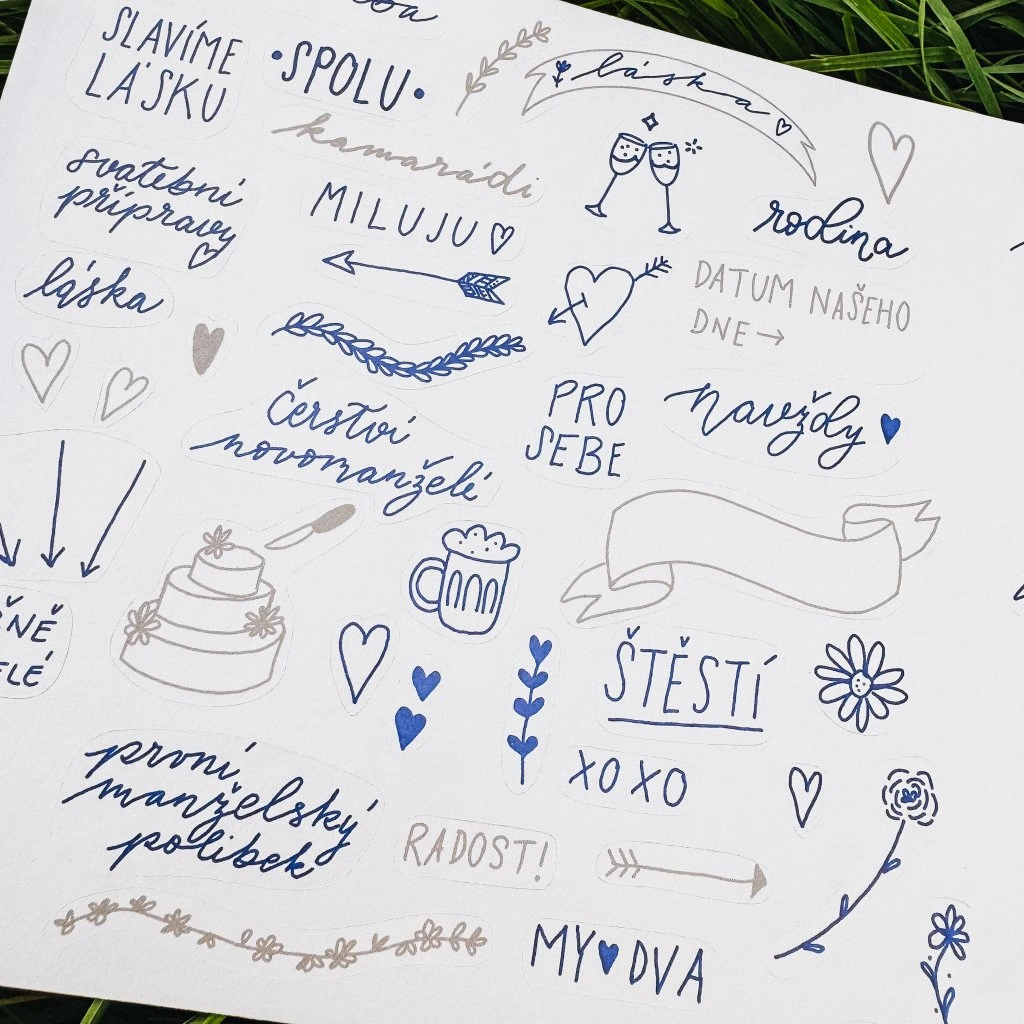 SLAVÍME
LÁSKU
•SPOLU•
láska
kamarádi
svatební
přípravy
MILUJU
rodina
láska
DATUM NAŠEHO
DNE →
Čerství
novomanželé
PRO
SEBE
Navždy
ŠTĚSTÍ
XOXO
první
manželský
polibek
RADOST!
MY DVA